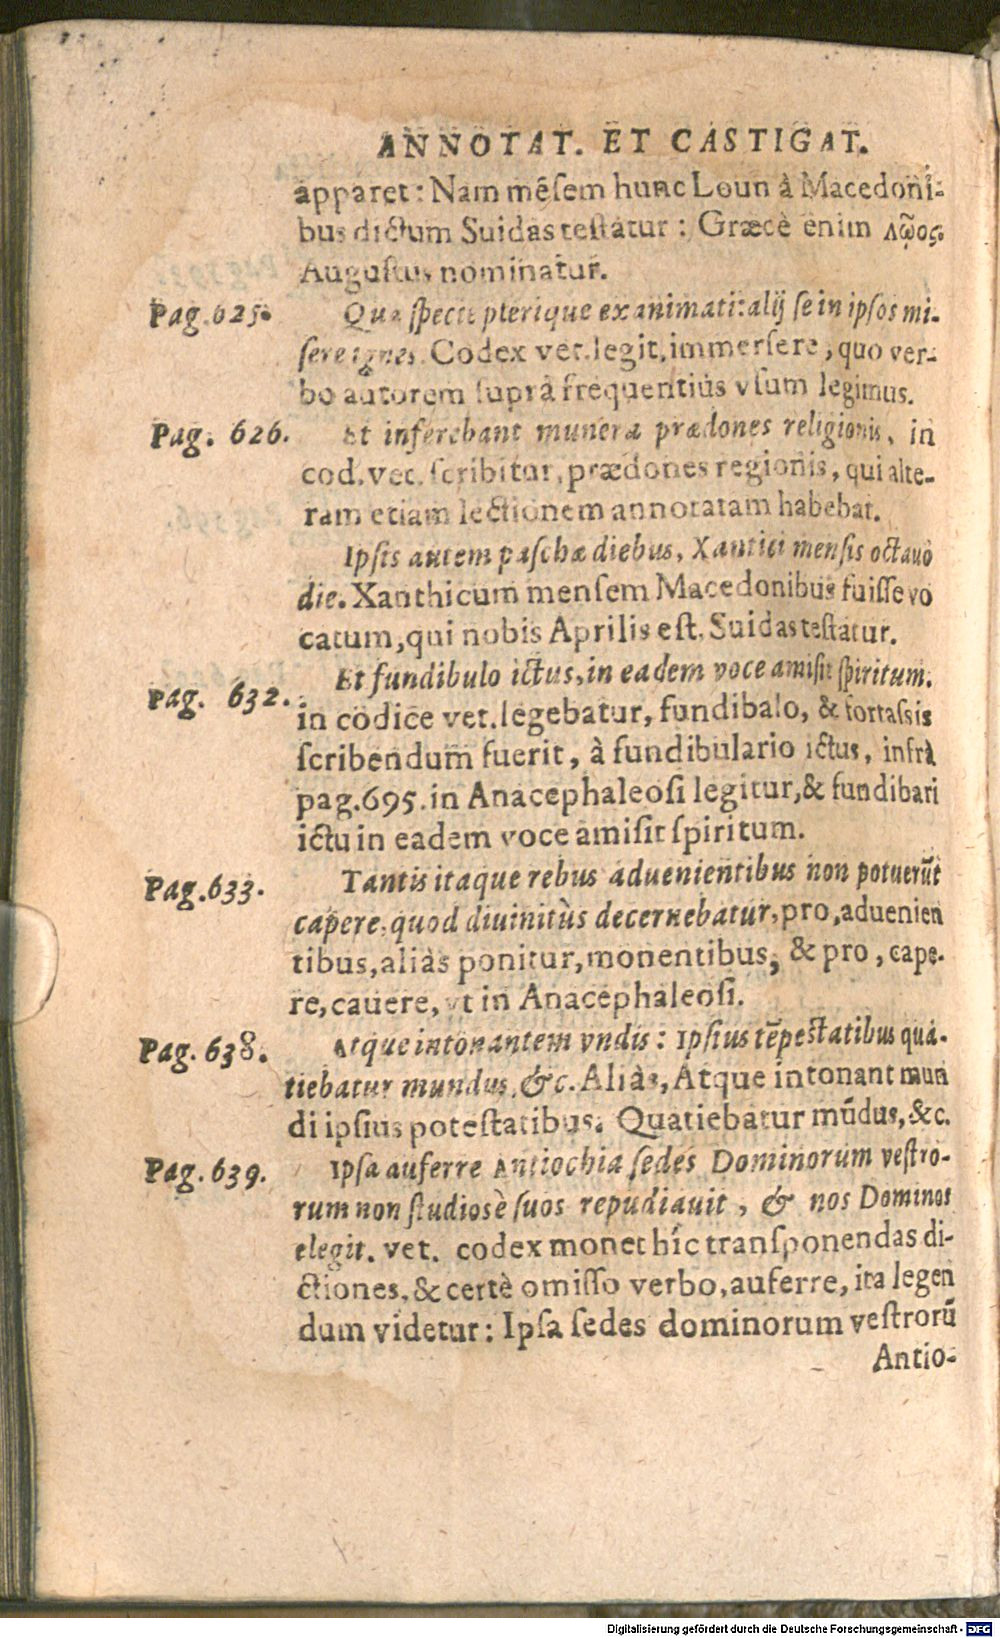 ANNOTAT. ET CASTIGAT.
apparet: Nam mēsem hunc Loun à Macedoni-
bus dictum Suidas testatur: Græcè enim Λῶος.
Augustus nominatur.
Pag. 625. Qua specie plerique exanimati: alij se in ipsos mi-
sere ignes. Codex vet. legit, immersere, quo ver-
bo autorem suprà frequentiùs vsum legimus.
Pag. 626. Et inferebant munera prædones religionis, in
cod. vet. scribitur, prædones regionis, qui alte-
ram etiam lectionem annotatam habebat.
Ipsis autem paschæ diebus, Xantici mensis octauo
die. Xanthicum mensem Macedonibus fuisse vo
catum, qui nobis Aprilis est, Suidas testatur.
Pag. 632. Et fundibulo ictus, in eadem voce amisit spiritum.
in codice vet. legebatur, fundibalo, & fortassis
scribendum fuerit, à fundibulario ictus, infrà
pag. 695. in Anacephaleosi legitur, & fundibari
ictu in eadem voce amisit spiritum.
Pag. 633. Tantis itaque rebus aduenientibus non potuerūt
capere, quod diuinitùs decernebatur, pro, aduenien
tibus, aliàs ponitur, monentibus, & pro, cape-
re, cauere, vt in Anacephaleosi.
Pag. 638. Atque intonantem vndis: Ipsius tēpestatibus qua-
tiebatur mundus, &c. Aliàs, Atque intonant mun
di ipsius potestatibus. Quatiebatur mūdus, &c.
Pag. 639. Ipsa auferre Antiochia sedes Dominorum vestro-
rum non studiosè suos repudiauit, & nos Dominos
elegit. vet. codex monet hîc transponendas di-
ctiones, & certè omisso verbo, auferre, ita legen
dum videtur: Ipsa sedes dominorum vestrorū
Antio-
Digitalisierung gefördert durch die Deutsche Forschungsgemeinschaft - DFG